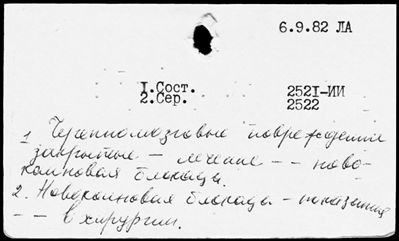 6.9.82 ЛА
1.Сост. 2521-ИИ
2.Сер. 2522
1 Черепномозговые повреждения
закрытые – лечение – – ново-
каиновая блокада.
2. Новокаиновая блокада – показания
– – в хирургии.